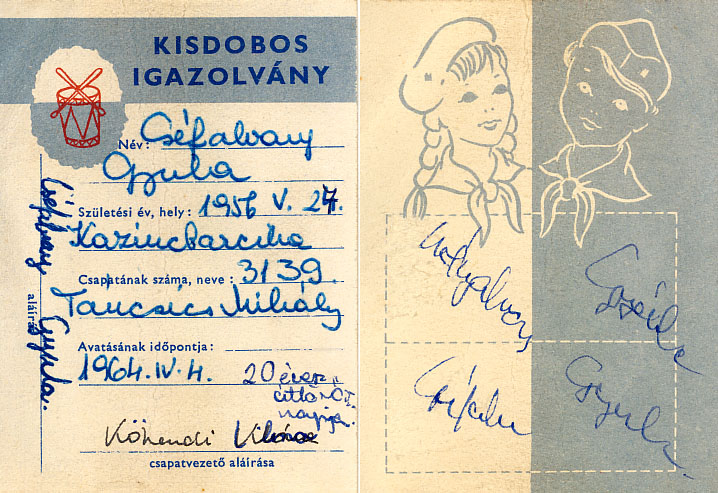 KISDOBOS
IGAZOLVÁNY
Név: Cséfalvay
Gyula
Születési év, hely: 1956 V. 27.
Kazincbarcika
Csapatának száma, neve: 3139.
Táncsics Mihály
Avatásának időpontja:
1964.IV.4.
20 éves
úttörő
napja.
Köhendi
csapatvezető aláírása
Cséfalvay Gyula.
aláírás
Gyula